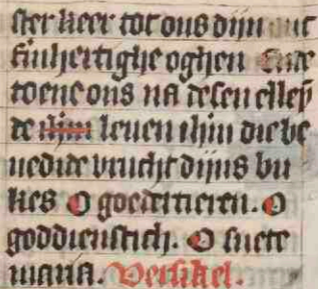 ster keer tot ons dijn
ontfermhertighe oghen Ende
toene ons na desen ellen
de leuen ihm die be
nedide vrucht dijns bu
kes O goedertieren. O
goddienstich. O suete
maria. Versikel.